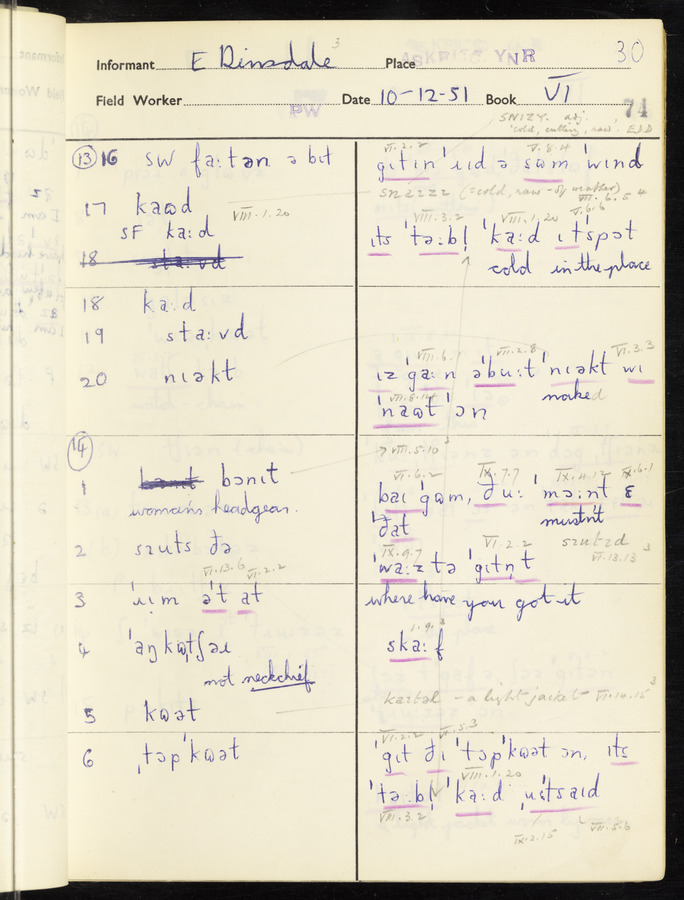 Informant E Dinsdale 3 Place ASKRIGG YNR 30
Field Worker PW Date 10-12-51 Book VI 74
SNIZY. adj.
'cold, cutting, raw. EDD
VI.2.2 V.8.4
⑬ 16 sw fa:tən ə bɪt gɪtɪn 'ɹɪd ə sʊm 'wɪnd
snɪzɪ (=cold, raw - of weather)
VIII.6.5 4
17 kaʊd VIII.1.20
VIII.3.2 VIII.1.20 V.6.6
SF ka:d ɪts 'tə:bl̩ 'ka:d ɪt'spɔt
18 sta:vd cold in the place
18 ka:d
19 sta:vd
VIII.6.1 VIII.2.8 VI.3.3
20 nɪəkt ɪz 'ga:n ə'bu:t 'nɪəkt wɪ
VII.8.14 naked
'naʊt 'ɔn
⑭ → VIII.5.10 3
VI.6.2 IX.7.7 IX.4.12 IX.6.1
1 bɔnɪt baɪ 'gʊm, ðu: 'mə:nt ɛ
woman's headgear. ðat mustn't
2 sɹuts ðə IX.9.7 VI.2.2 VI.13.13 3
VI.13.6 VI.2.2 'wa:z tə 'gɪtn̩ t
3 'ɹɪm ə't at where have you got it
1.9.3
4 'aŋkətʃəɪ ska:f
not neckchief
kaɪtəl - a light jacket VI.14.15 3
5 kʊət
VI.2.2 V.5.3
6 ˌtɔp'kʊət 'gɪt ðɪ 'tɔp'kʊət ɔn, ɪts
VIII.1.20
'tə:bl̩ 'ka:d ˌu:t'saɪd
VIII.3.2 IX.2.15 VII.5.6